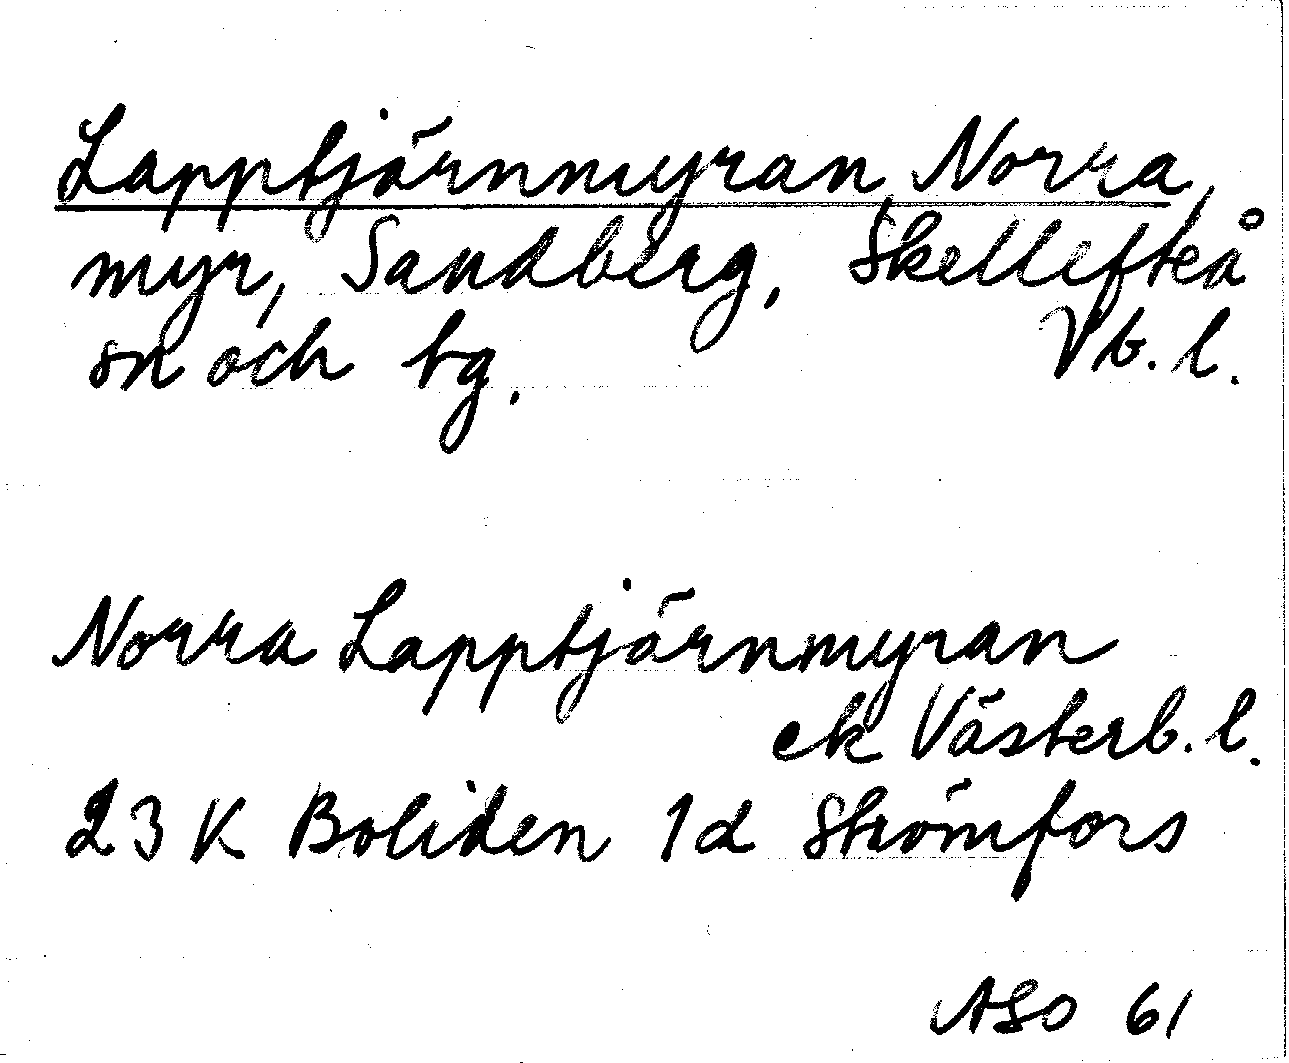 Lapptjärnmyran, Norra,
myr, Sandberg, Skellefteå
sn och tg. Vb. l.
Norra Lapptjärnmyran
ek Västerb. l.
23 K Boliden 1d Strömfors
ASO 61